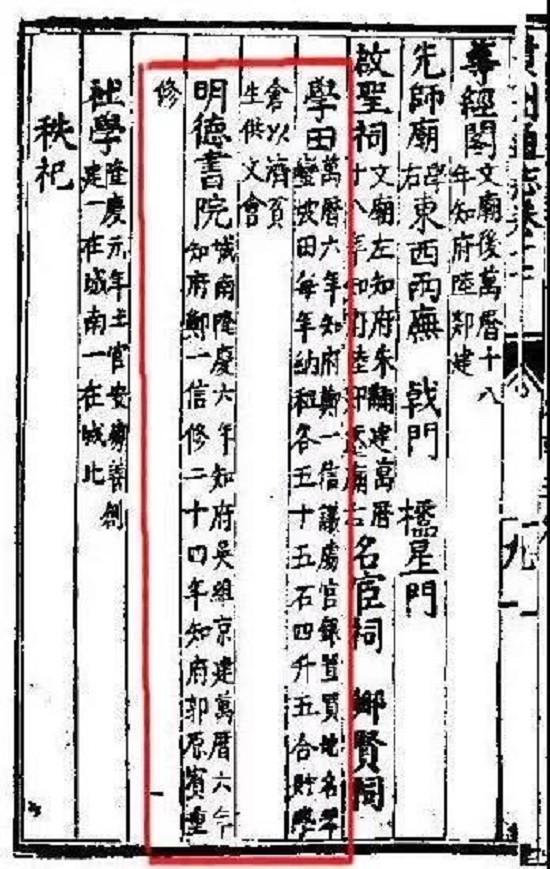 尊經閣 文廟後萬曆十八
年知府陸郯建
先師廟 學
右 東西兩廡 戟門 櫺星門
啟聖祠 文廟左知府朱建萬曆
十八年知府陸 廟右 名宦祠 鄉賢祠
學田 萬曆六年知府鄭一信議處官銀置買地名翠
坡田每年納租各五十五石四升五合貯學
倉以濟貧
生供文會
明德書院 城南隆慶六年知府吳維京建萬曆六年
知府鄭一信修二十四年知府郭原賓重
修
社學 隆慶元年土官安善創
建一在城南一在城北
秩祀